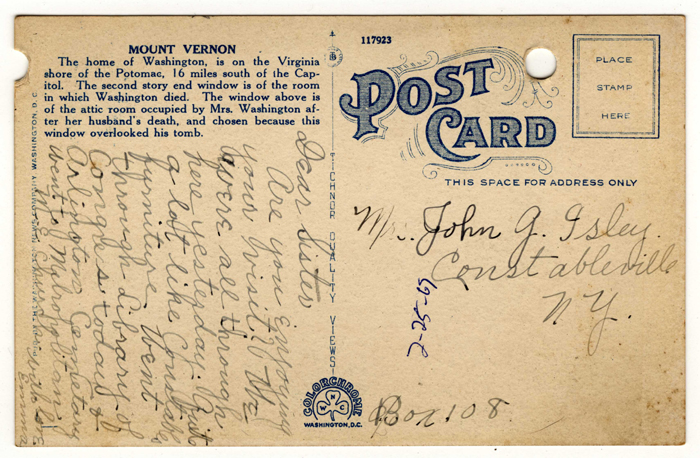 MOUNT VERNON
The home of Washington, is on the Virginia
shore of the Potomac, 16 miles south of the Cap-
itol. The second story end window is of the room
in which Washington died. The window above is
of the attic room occupied by Mrs. Washington af-
ter her husband's death, and chosen because this
window overlooked his tomb.
Dear Sister
Are you enjoying
your visit? We
were all through
here yesterday.
a lot like
furniture. Went
through Library of
Congress today &
Arlington Cemetery
went to Metropolitan
Emma
WASHINGTON, D.C.
TICHNOR QUALITY VIEWS
117923
POST
CARD
PLACE
STAMP
HERE
THIS SPACE FOR ADDRESS ONLY
Mr. John G. Isley.
Constableville
N.Y.
2-25-69
Box 108
COLORCHROME
WNC
WASHINGTON, D.C.